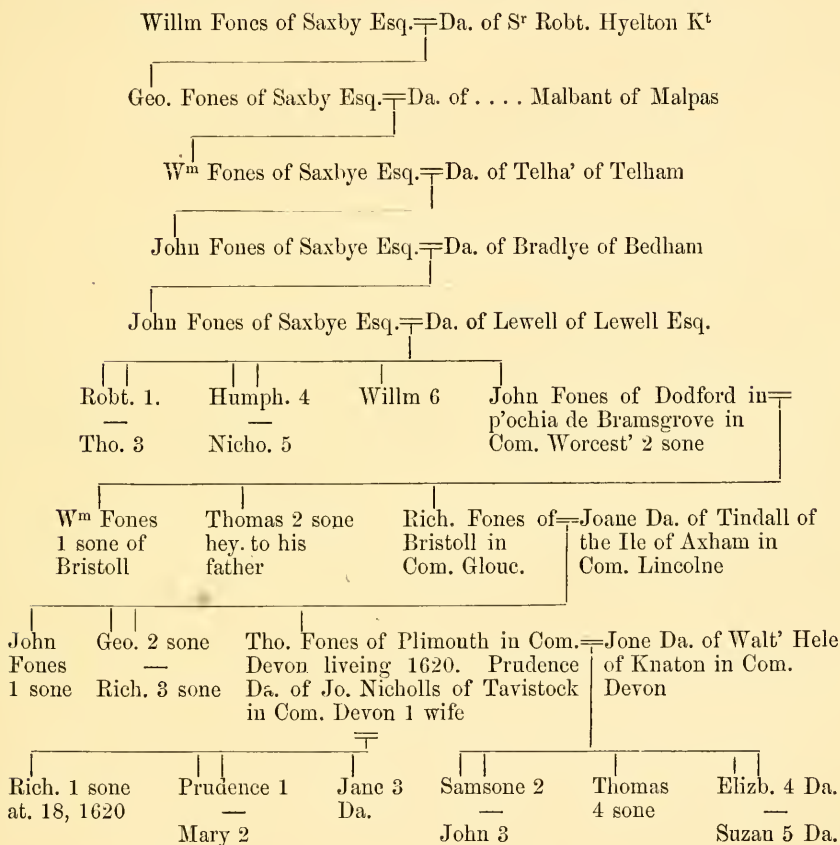 Willm Fones of Saxby Esq.=Da. of Sʳ Robt. Hyelton Kᵗ
Geo. Fones of Saxby Esq.=Da. of . . . . Malbant of Malpas
Wᵐ Fones of Saxbye Esq.=Da. of Telha' of Telham
John Fones of Saxbye Esq.=Da. of Bradlye of Bedham
John Fones of Saxbye Esq.=Da. of Lewell of Lewell Esq.
Robt. 1.
—
Tho. 3
Humph. 4
—
Nicho. 5
Willm 6
John Fones of Dodford in=
p'ochia de Bramsgrove in
Com. Worcest' 2 sone
Wᵐ Fones
1 sone of
Bristoll
Thomas 2 sone
hey. to his
father
Rich. Fones of=Joane Da. of Tindall of
Bristoll in
Com. Glouc.
the Ile of Axham in
Com. Lincolne
John
Fones
1 sone
Geo. 2 sone
—
Rich. 3 sone
Tho. Fones of Plimouth in Com.=Jone Da. of Walt' Hele
Devon liveing 1620. Prudence
Da. of Jo. Nicholls of Tavistock
in Com. Devon 1 wife
of Knaton in Com.
Devon
Rich. 1 sone
at. 18, 1620
Prudence 1
—
Mary 2
Jane 3
Da.
Samsone 2
—
John 3
Thomas
4 sone
Elizb. 4 Da.
—
Suzan 5 Da.